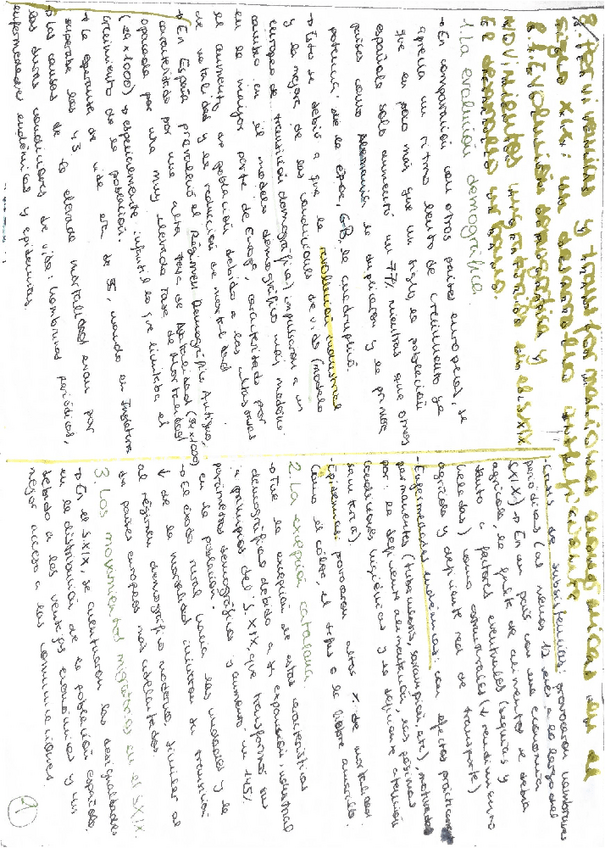 8. Pervivencias y transformaciones económicas en el
siglo XIX: un desarrollo insuficiente
8.1 Evolución demográfica y
movimientos migratorios en el S.XIX
El desarrollo urbano.
1. La evolución demográfica.
→ En comparación con otros países europeos, se
aprecia un ritmo lento de crecimiento ya
que en poco más que un siglo, la población
española solo aumentó un 77% mientras que otros
países como Alemania la duplicaron y la primera
potencia de la época, GB, la cuadruplicó.
→ Esto se debió a que la revolución industrial
y la mejora de las condiciones de vida (modelo
europeo de transición demográfica) impulsaron a un
cambio en el modelo demográfico más moderno
en la mayor parte de Europa, caracterizado por
el aumento de población debido a las altas tasas
de natalidad y la reducción de mortalidad.
→ En España prevaleció el Régimen Demográfico Antiguo,
caracterizado por una alta tasa de natalidad (34x1000)
opacada por una muy elevada tasa de mortalidad
(29x1000) → especialmente infantil lo que limitaba el
crecimiento de la población.
→ La esperanza de vida era de 35, cuando en Inglaterra
superaba los 43.
→ Las causas de la elevada mortalidad eran por
las duras condiciones de vida: hambrunas periódicas,
enfermedades endémicas y epidemias.
- Crisis de subsistencias: provocaron hambrunas
periódicas (al menos 12 veces a lo largo del
S.XIX) → En un país con una economía
agrícola la falta de alimentos se debía
tanto a factores eventuales (sequías y
heladas) como estructurales (↓ rendimiento
agrícola y deficiente red de transporte)
- Enfermedades endémicas: con efectos prácticamente
permanentes (tuberculosis, sarampión, etc) motivadas
por: la deficiente alimentación, las pésimas
condiciones higiénicas y la deficiente atención
sanitaria).
- Epidemias: provocaron altas % de mortalidad
como el cólera, el tifus o la fiebre amarilla.
2. La excepción catalana.
→ Fue la excepción de estas características
demográficas debido a su expansión industrial
a principios del S.XIX, que transformó sus
parámetros demográficos y aumentó un 145%
en la población.
→ El éxodo rural hacia las ciudades y la
↓ de la mortalidad iniciaron su transición
al régimen demográfico moderno, similar al
de países europeos más adelantados.
3. Los movimientos migratorios en el S.XIX.
→ En el S.XIX, se acentuaron las desigualdades
en la distribución de la población española,
debido a las ventajas económicas y un
mejor acceso a las comunicaciones.
9